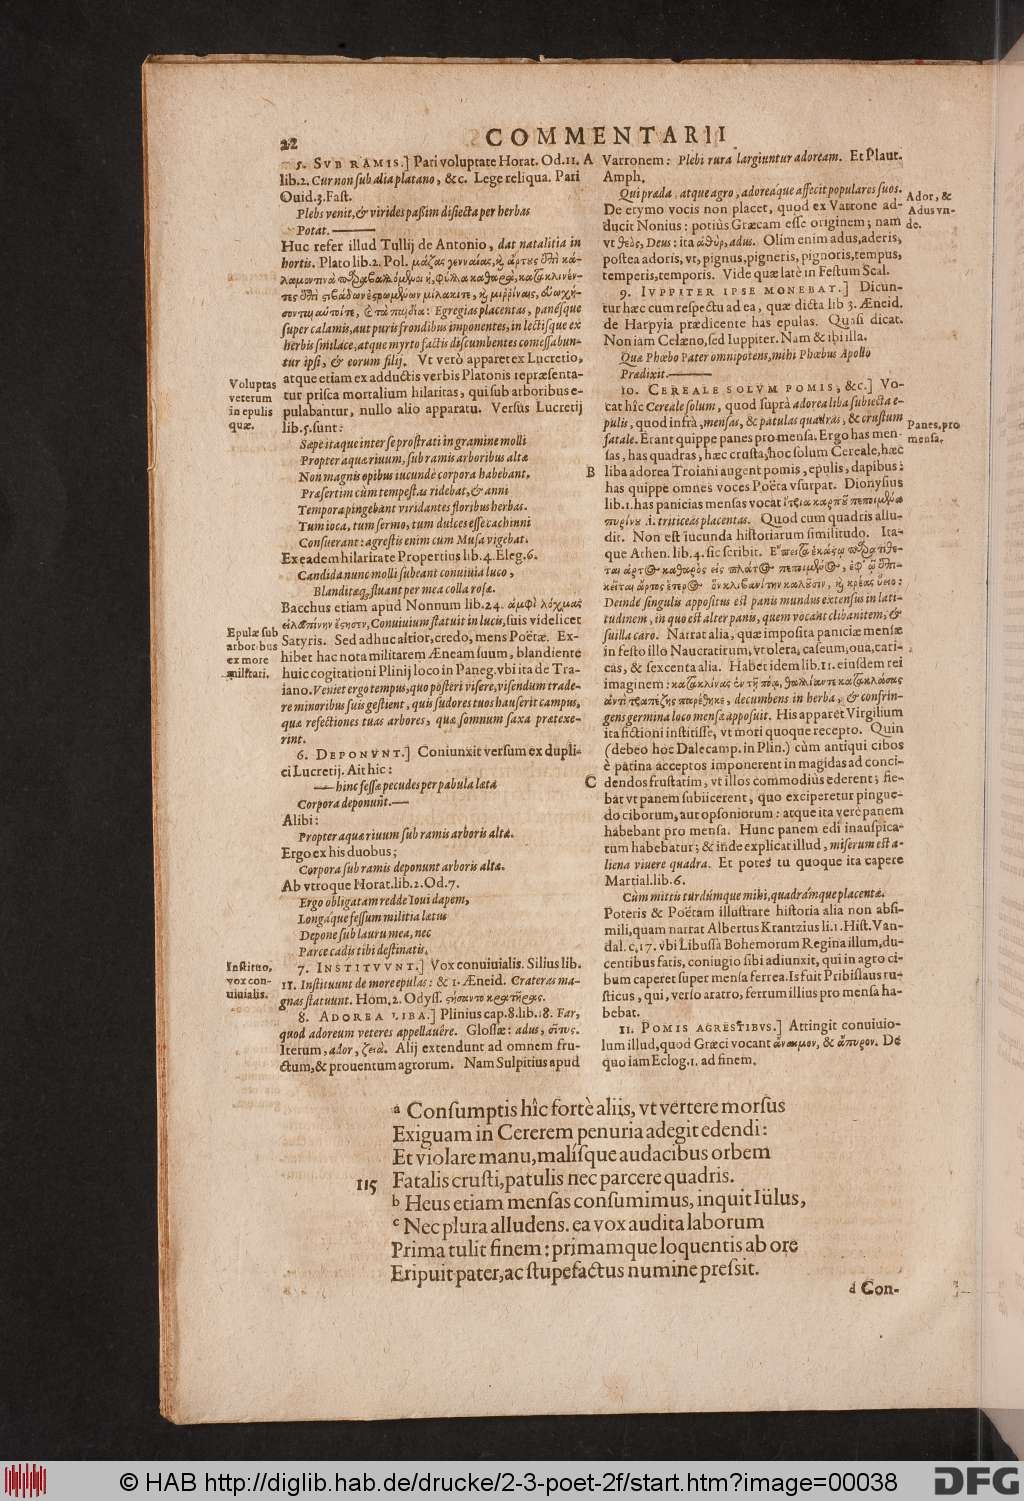 22
COMMENTARII
5. SVB RAMIS.] Pari voluptate Horat. Od. 11.
lib. 2. Cur non sub alta platano, &c. Lege reliqua. Pari
Ouid. 3. Fast.
Plebs venit, & virides passim disiecta per herbas
Potat.
Huc refer illud Tullij de Antonio, dat natalitia in
hortis. Plato lib. 2. Pol. μάζας γενναίας, καὶ ἄρτους
Egregias placentas, panesque
super calamis, aut puris frondibus imponentes, in lectisque ex
herbis smilace, atque myrto factis discumbentes comessabun-
tur ipsi, & eorum filij. Vt verò apparet ex Lucretio,
atque etiam ex adductis verbis Platonis repræsenta-
tur prisca mortalium hilaritas, qui sub arboribus e-
pulabantur, nullo alio apparatu. Versus Lucretij
lib. 5. sunt:
Sæpe itaque inter se prostrati in gramine molli
Propter aquæ riuum, sub ramis arboribus altæ
Non magnis opibus iucundè corpora habebant.
Præsertim cùm tempestas ridebat, & anni
Tempora pingebant viridantes floribus herbas.
Tum ioca, tum sermo, tum dulces esse cachinni
Consuerant: agrestis enim cum Musa vigebat.
Ex eadem hilaritate Propertius lib. 4. Eleg. 6.
Candida nunc molli subeant conuiuia luco,
Blanditæq; fluant per mea colla rosæ.
Bacchus etiam apud Nonnum lib. 24. ἀμφὶ λόχμας
εἰλαπίνην ἔστησεν, Conuiuium statuit in lucis, suis videlicet
Satyris. Sed adhuc altior, credo, mens Poëtæ. Ex-
hibet hac nota militarem Æneam suum, blandiente
huic cogitationi Plinij loco in Paneg. vbi ita de Tra-
iano. Veniet ergo tempus, quo posteri visere, visendum trade-
re minoribus suis gestient, quis sudores tuos hauserit campus,
quæ refectiones tuas arbores, quæ somnum saxa prætexe-
rint.
6. DEPONVNT.] Coniunxit versum ex dupli-
ci Lucretij. Ait hic:
hinc fessæ pecudes per pabula læta
Corpora deponunt.
Alibi:
Propter aquæ riuum sub ramis arboris altæ.
Ergo ex his duobus;
Corpora sub ramis deponunt arboris altæ.
Ab vtroque Horat. lib. 2. Od. 7.
Ergo obligatam redde Ioui dapem,
Longáque fessum militia latus
Depone sub lauru mea, nec
Parce cadis tibi destinatis.
7. INSTITVVNT.] Vox conuiuialis. Silius lib.
11. Instituunt de more epulas: & 1. Æneid. Crateras ma-
gnas statuunt. Hom. 2. Odyss. στήσαντο κρητῆρας.
8. ADOREA LIBA.] Plinius cap. 8. lib. 18. Far,
quod adoreum veteres appellauêre. Glossæ: adus, σῖτος.
Iterum, ador, ζειά. Alij extendunt ad omnem fru-
ctum, & prouentum agrorum. Nam Sulpitius apud
Voluptas
veterum
in epulis
quæ.
Epulæ sub
arboribus
ex more
militari.
Instituo,
vox con-
uiuialis.
A
B
C
Varronem: Plebi rura largiuntur adoream. Et Plaut.
Amph.
Qui præda, atque agro, adoreáque affecit populares suos.
De etymo vocis non placet, quod ex Varrone ad-
ducit Nonius: potiùs Græcam esse originem; nam
vt θεὸς, Deus: ita ἀθὴρ, adus. Olim enim adus, aderis,
postea adoris, vt, pignus, pigneris, pignoris, tempus,
temperis, temporis. Vide quæ latè in Festum Scal.
9. IVPPITER IPSE MONEBAT.] Dicun-
tur hæc cum respectu ad ea, quæ dicta lib 3. Æneid.
de Harpyia prædicente has epulas. Quasi dicat.
Non iam Celæno, sed Iuppiter. Nam & ibi illa.
Quæ Phœbo Pater omnipotens, mihi Phœbus Apollo
Prædixit.
10. CEREALE SOLVM POMIS, &c.] Vo-
cat hîc Cereale solum, quod suprà adorea liba subiecta e-
pulis, quod infrà, mensas, & patulas quadras, & crustum
fatale. Erant quippe panes pro mensa. Ergo has men-
sas, has quadras, hæc crusta, hoc solum Cereale, hæc
liba adorea Troiani augent pomis, epulis, dapibus:
has quippe omnes voces Poëta vsurpat. Dionysius
lib. 1. has panicias mensas vocat
πυρίνου .i. triticeas placentas. Quod cum quadris allu-
dit. Non est iucunda historiarum similitudo. Ita-
que Athen. lib. 4. sic scribit.
Deinde singulis appositus est panis mundus extensus in lati-
tudinem, in quo est alter panis, quem vocant clibanitem, &
suilla caro. Narrat alia, quæ imposita paniciæ mensæ
in festo illo Naucratitum, vt olera, caseum, oua, cari-
cas, & sexcenta alia. Habet idem lib. 11. eiusdem rei
imaginem:
decumbens in herba, & confrin-
gens germina loco mensæ apposuit. His apparet Virgilium
ita fictioni institisse, vt mori quoque recepto. Quin
(debeo hoc Dalecamp. in Plin.) cùm antiqui cibos
è patina acceptos imponerent in magidas ad conci-
dendos frustatim, vt illos commodiùs ederent; fie-
bat vt panem subiicerent, quo exciperetur pingue-
do ciborum, aut opsoniorum: atque ita verè panem
habebant pro mensa. Hunc panem edi inauspica-
tum habebatur; & inde explicat illud, miserum est a-
liena viuere quadra. Et potes tu quoque ita capere
Martial. lib. 6.
Cùm mittis turdúmque mihi, quadrámque placentæ.
Poteris & Poëtam illustrare historia alia non absi-
mili, quam narrat Albertus Krantzius li. 1. Hist. Van-
dal. c. 17. vbi Libussa Bohemorum Regina illum, du-
centibus fatis, coniugio sibi adiunxit, qui in agro ci-
bum caperet super mensa ferrea. Is fuit Pribislaus ru-
sticus, qui, verso aratro, ferrum illius pro mensa ha-
bebat.
11. POMIS AGRESTIBVS.] Attingit conuiuio-
lum illud, quod Græci vocant ἄναιμον, & ἄπυρον. De
quo iam Eclog. 1. ad finem.
Ador, &
Adus vn-
de.
Panes, pro
mensa.
a Consumptis hîc fortè aliis, vt vertere morsus
Exiguam in Cererem penuria adegit edendi:
Et violare manu, malisque audacibus orbem
115 Fatalis crusti, patulis nec parcere quadris.
b Heus etiam mensas consumimus, inquit Iülus,
c Nec plura alludens. ea vox audita laborum
Prima tulit finem: primamque loquentis ab ore
Eripuit pater, ac stupefactus numine pressit.
d Con-
© HAB http://diglib.hab.de/drucke/2-3-poet-2f/start.htm?image=00038
DFG